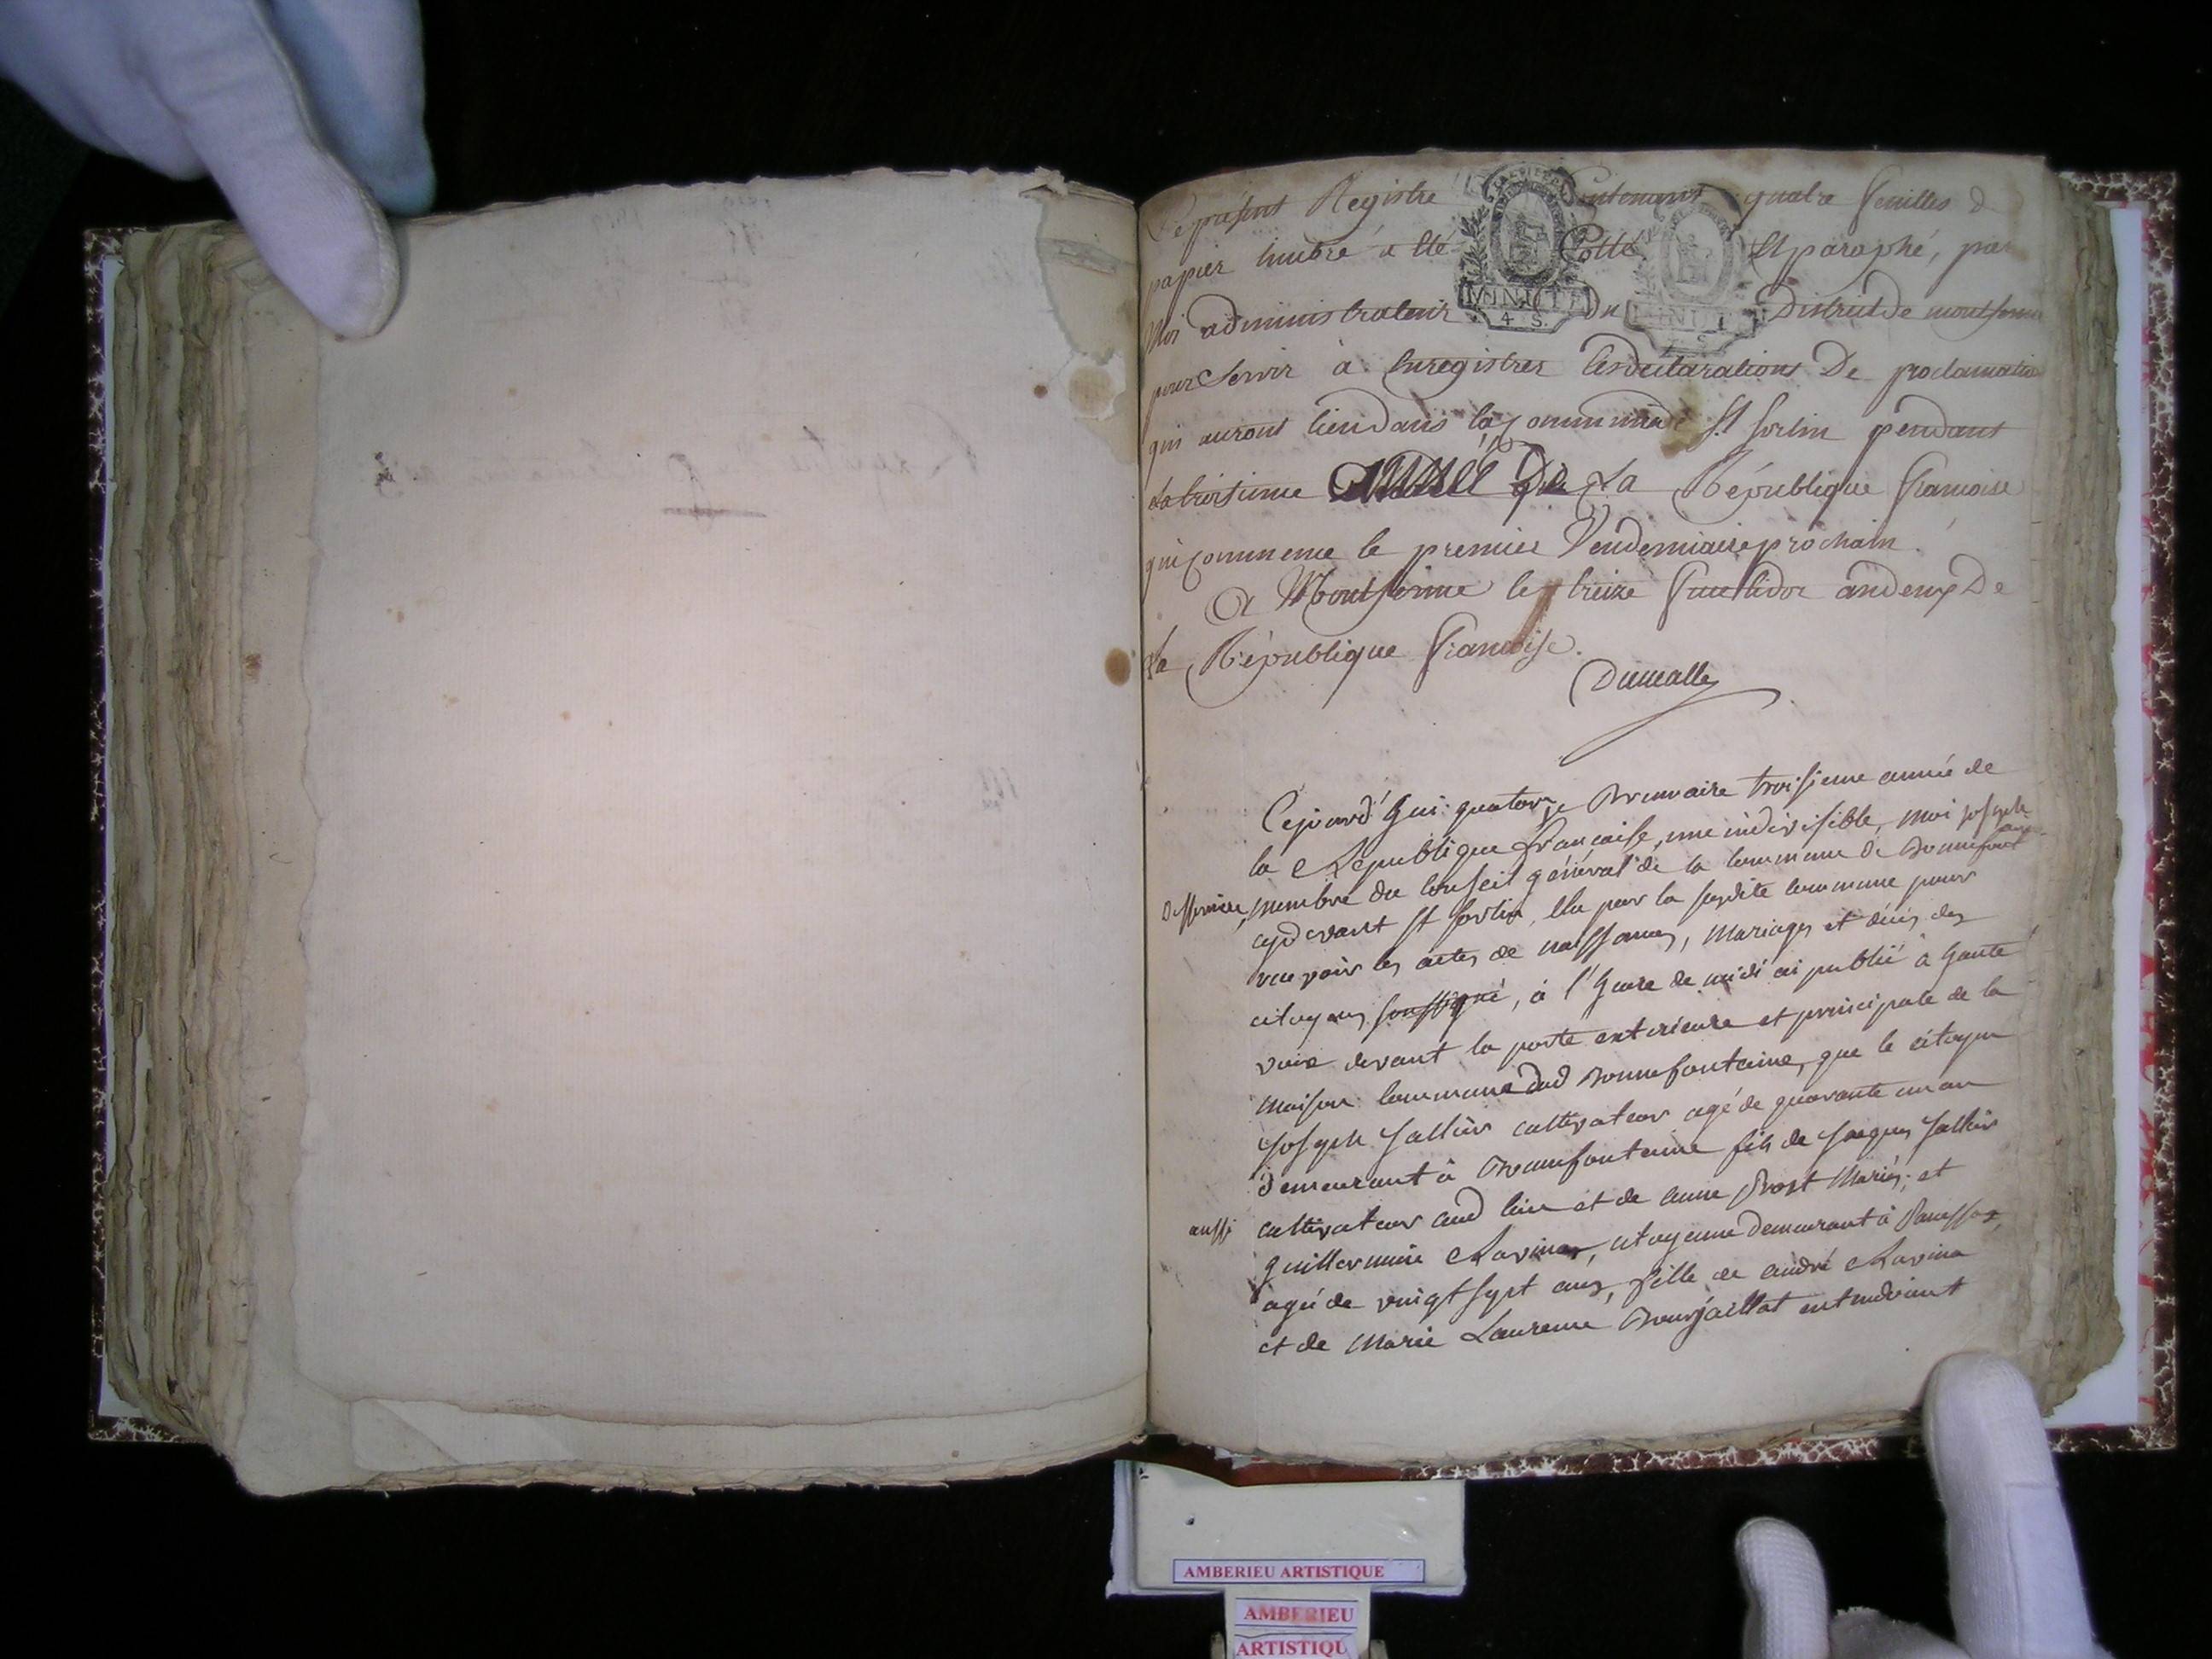 Le présent Registre Contenant quatre feuilles d
papier timbré a été Cotté Et paraphé, par
Moi administrateur du District de montferme
pour Servir à Enregistrer les déclarations De proclamation
qui auront lieu dans la Commune de St Sorlin pendant
la troisieme année De La République francoise
qui Commence le premier Vendemiaire prochain.
A Montferme le treize fructidor an deux De
La République francoise.
MINUTE
4 S.
MINUT
Cejourd'hui quatorze Brumaire troisieme année de
la République française, une indivisible, moi joseph
membre du Conseil général de la Commune de Bonnefont
cydevant St Sorlin, élu par la susdite Commune pour
recevoir les actes de naissances, mariages et décès des
citoyens soussigné, à l'heure de midi ai publié à haute
voix devant la porte exterieure et principale de la
maison Commune dud Bonnefontaine, que le citoyen
joseph jallier cultivateur agé de quarante un an
demeurant à Bonnefontaine fils de jacques jallier
aussi cultivateur aud lieu et de anne Prost mariés; et
guillermine Ravinar, citoyenne demeurant à
agée de vingt sept ans, fille de andré Ravina
et de marie Laurence Bourjaillat entendoient
AMBERIEU ARTISTIQUE
AMBERIEU
ARTISTIQU